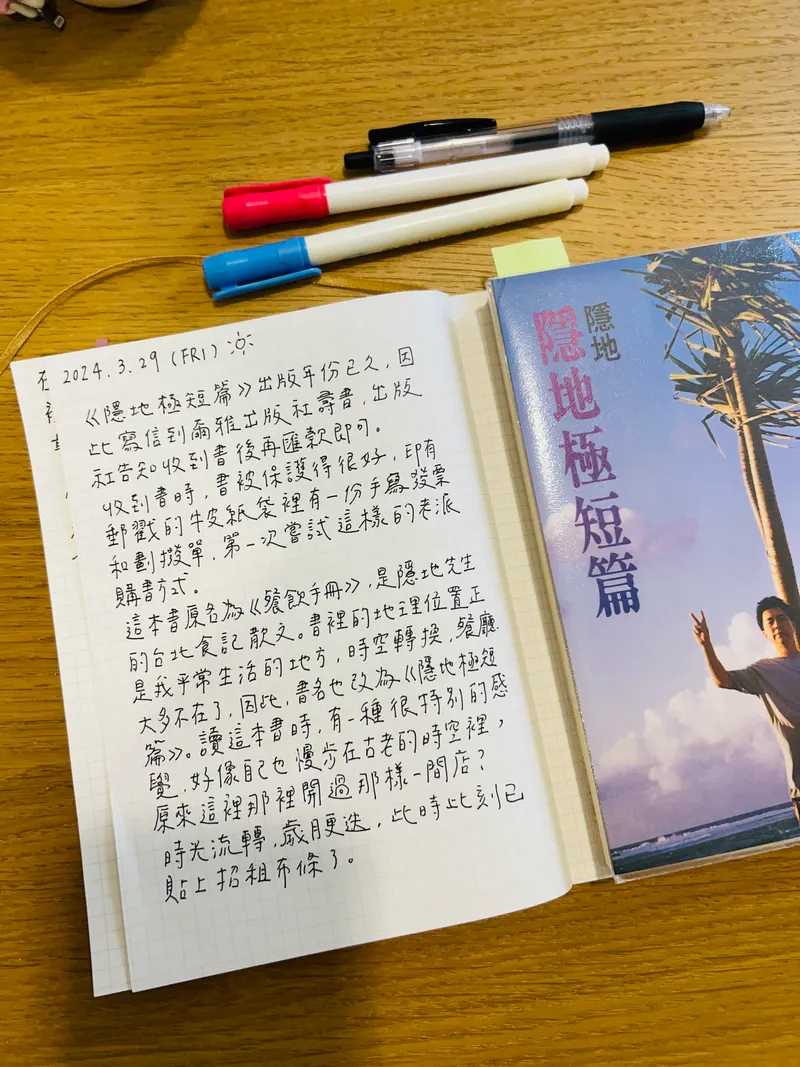 2024.3.29 (FRI)
《隱地極短篇》出版年份已久，因
此寫信到爾雅出版社壽書，出版
社告知收到書後再匯款即可。
收到書時，書被保護得很好，印有
郵戳的牛皮紙袋裡有一份手寫發票
和劃撥單，第一次嘗試這樣的老派
購書方式。
這本書原名為《餐飲手冊》，是隱地先生
的台北食記散文。書裡的地理位置正
是我平常生活的地方，時空轉換，餐廳
大多不在了，因此，書名也改為《隱地極短
篇》。讀這本書時，有一種很特別的感
覺，好像自己也漫步在古老的時空裡，
原來這裡那裡開過那樣一間店？
時光流轉，歲月更迭，此時此刻已
貼上招租布條了。
隱地
隱地極短篇